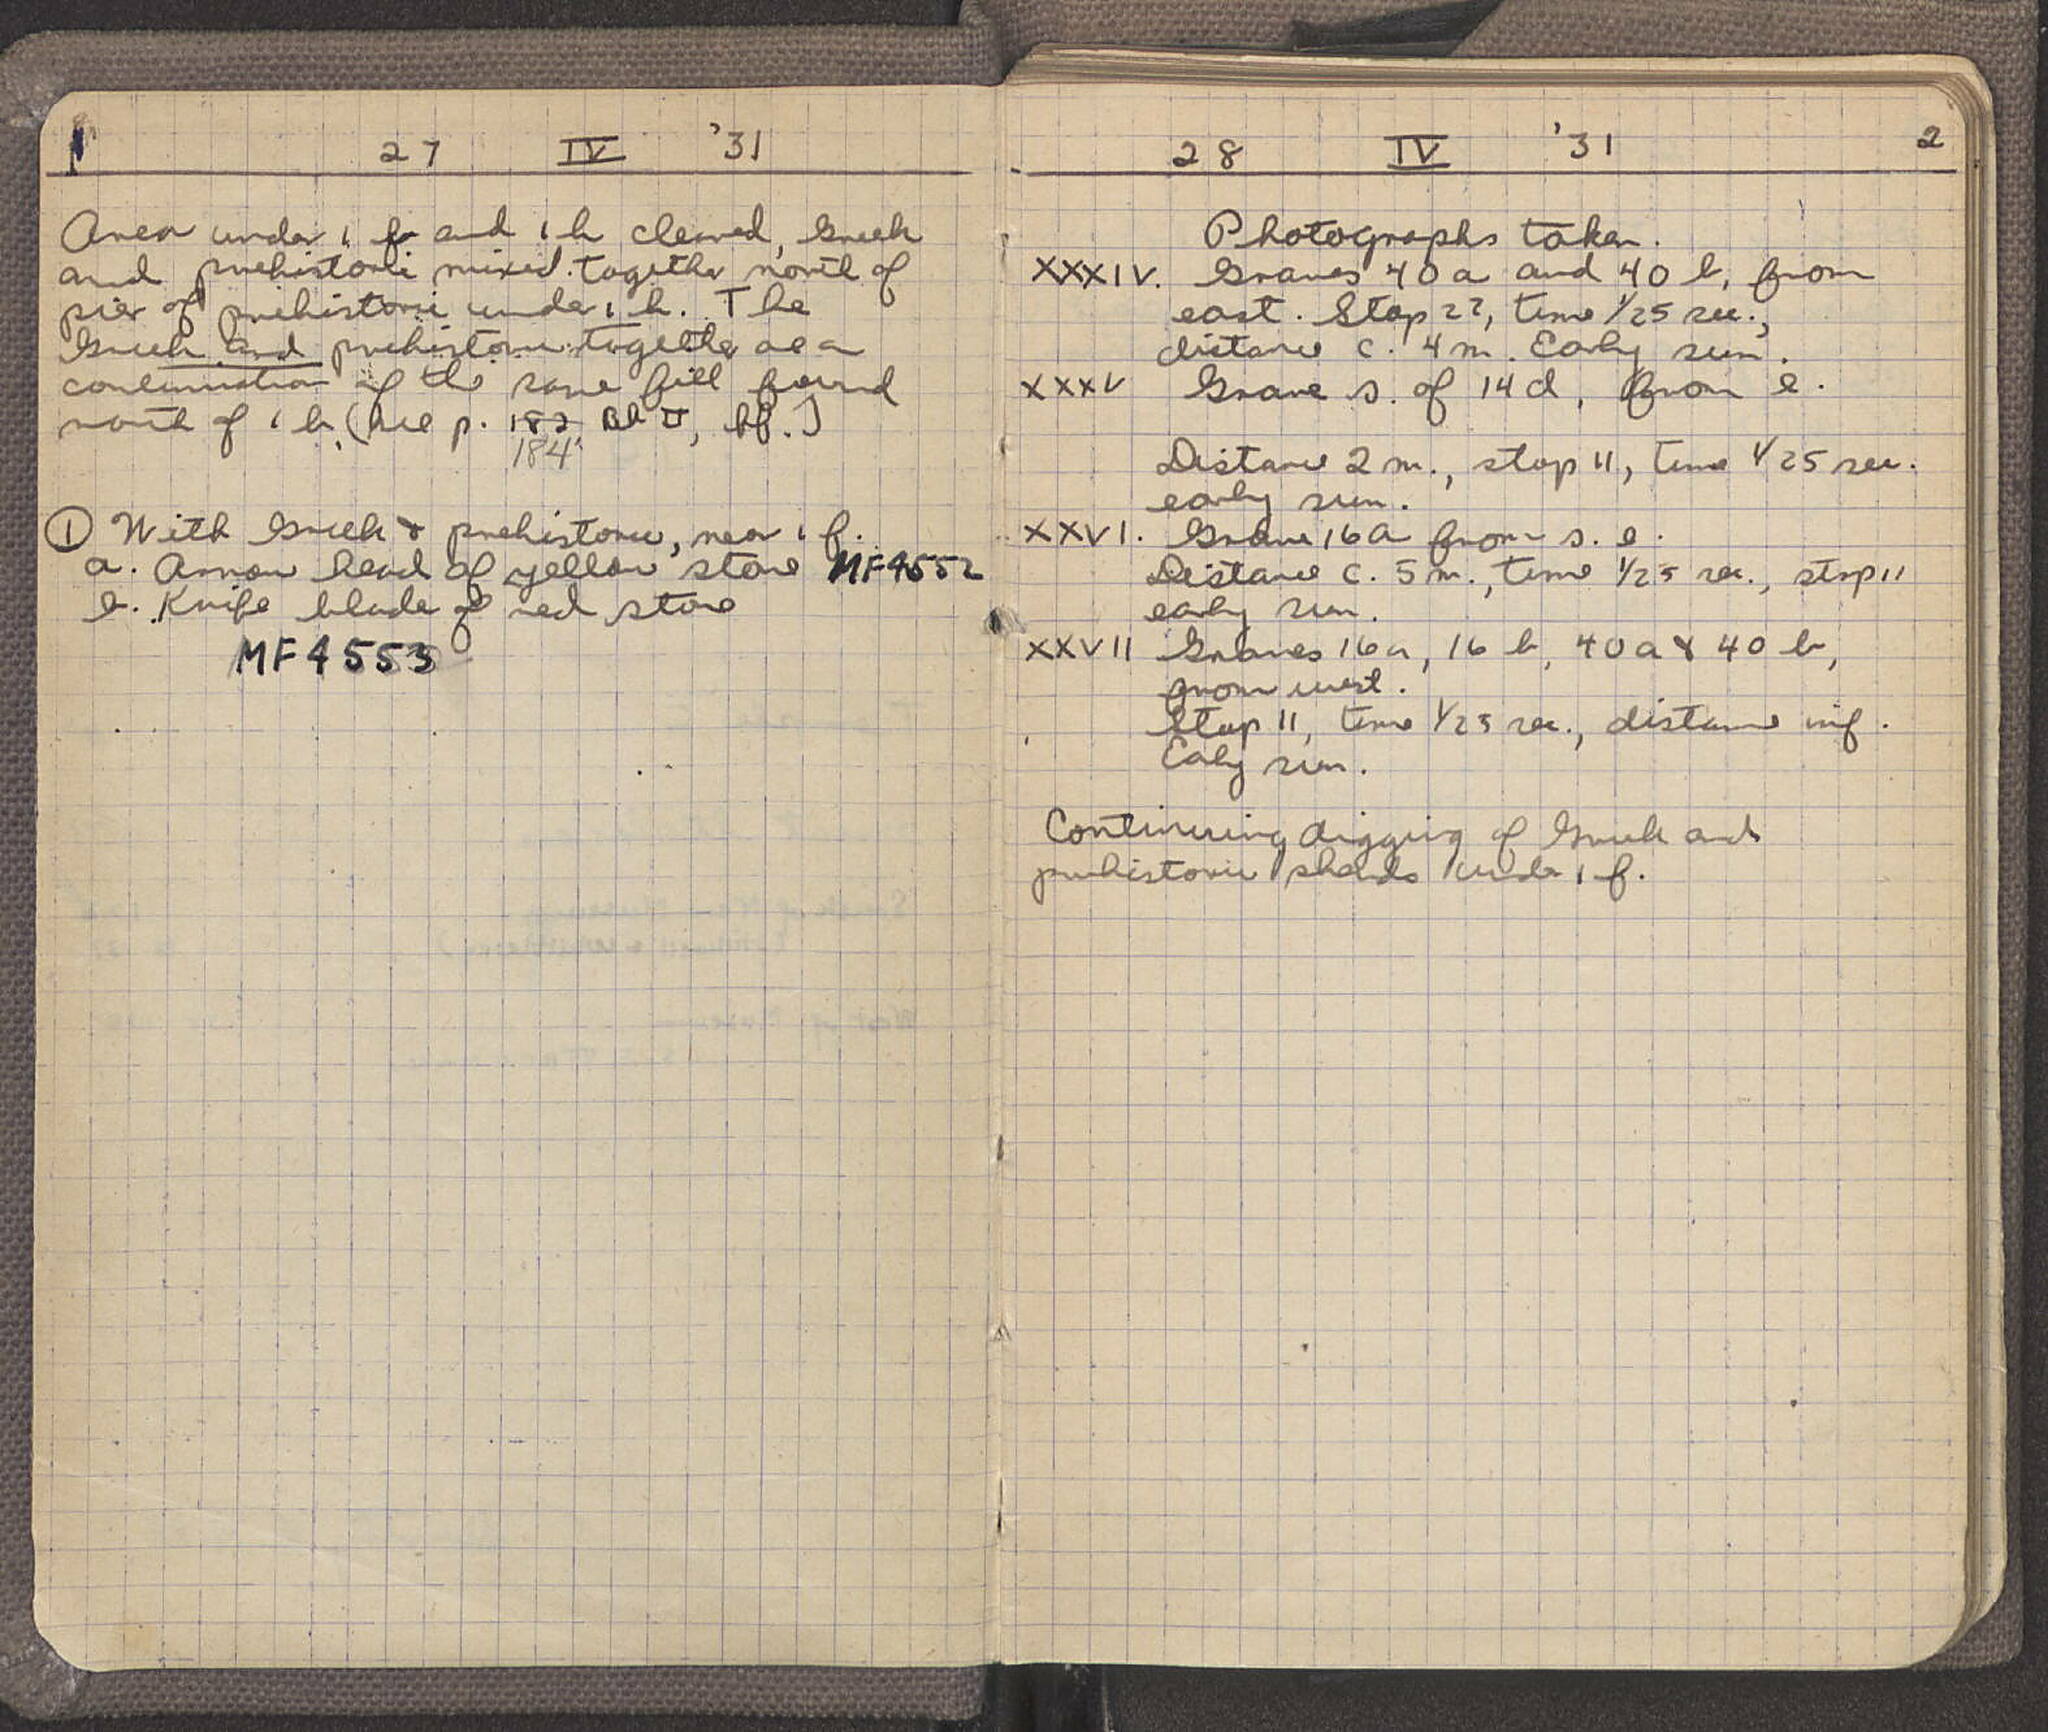 1
27 IV '31
Area under 1 f and 1 h cleared, Greek
and prehistoric mixed together north of
pier of prehistoric under 1 h. The
Greek and prehistoric together as a
continuation of the same fill found
north of 1 h (see p. 182 Bk II, ff.)
184
1 With Greek & prehistoric, near 1 f.
a. Arrow head of yellow stone MF4552
b. Knife blade of red stone
MF4553
28 IV '31 2
Photographs taken.
XXXIV. Graves 40a and 40b, from
east. Stop 22, time 1/25 sec.,
distance c. 4m. Early sun.
XXXV Grave s. of 14d, from e.
Distance 2 m., stop 11, time 1/25 sec.
early sun.
XXVI. Grave 16a from s. e.
Distance c. 5 m., time 1/25 sec., stop 11
early sun.
XXVII Graves 16a, 16 b, 40a & 40 b,
from west.
Stop 11, time 1/25 sec., distance inf.
Ealy sun.
Continuing digging of Greek and
prehistoric sherds under 1 f.